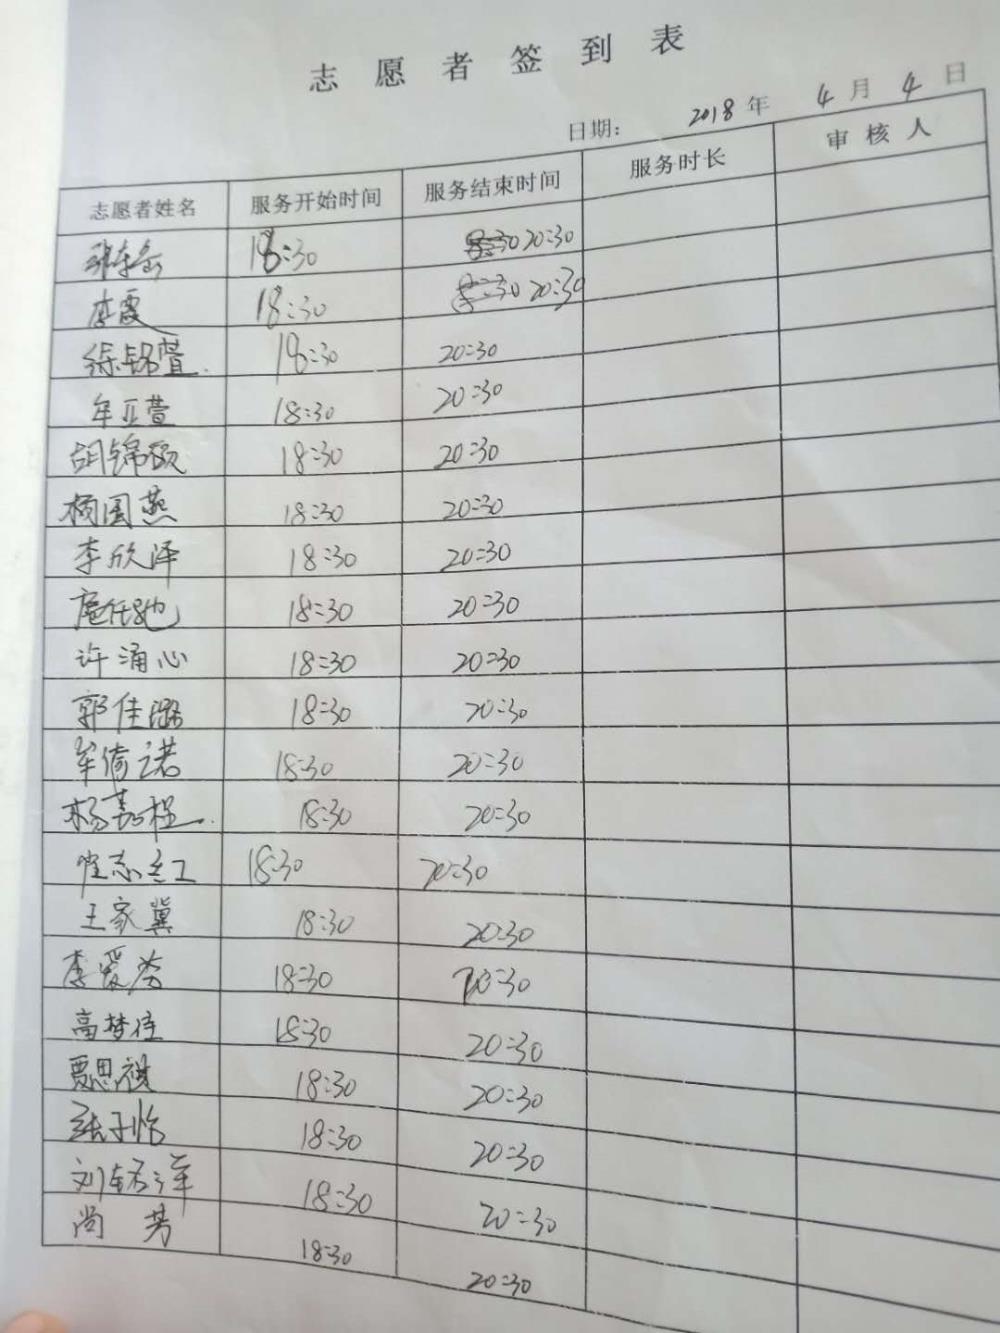 志愿者签到表
日期： 2018年 4月 4日
志愿者姓名 服务开始时间 服务结束时间 服务时长 审核人
18:30 20:30
李霞 18:30 20:30
徐铭萱. 18:30 20:30
牟亚萱 18:30 20:30
胡锦颐 18:30 20:30
杨国燕 18:30 20:30
李欣泽 18:30 20:30
18:30 20:30
许涌心 18:30 20:30
郭佳璐 18:30 20:30
牟倚诺 18:30 20:30
杨嘉程. 18:30 20:30
崔志红 18:30 20:30
王家冀 18:30 20:30
李爱芬 18:30 20:30
高梦佳 18:30 20:30
贾思祺 18:30 20:30
张子怡 18:30 20:30
18:30 20:30
尚芳 18:30 20:30